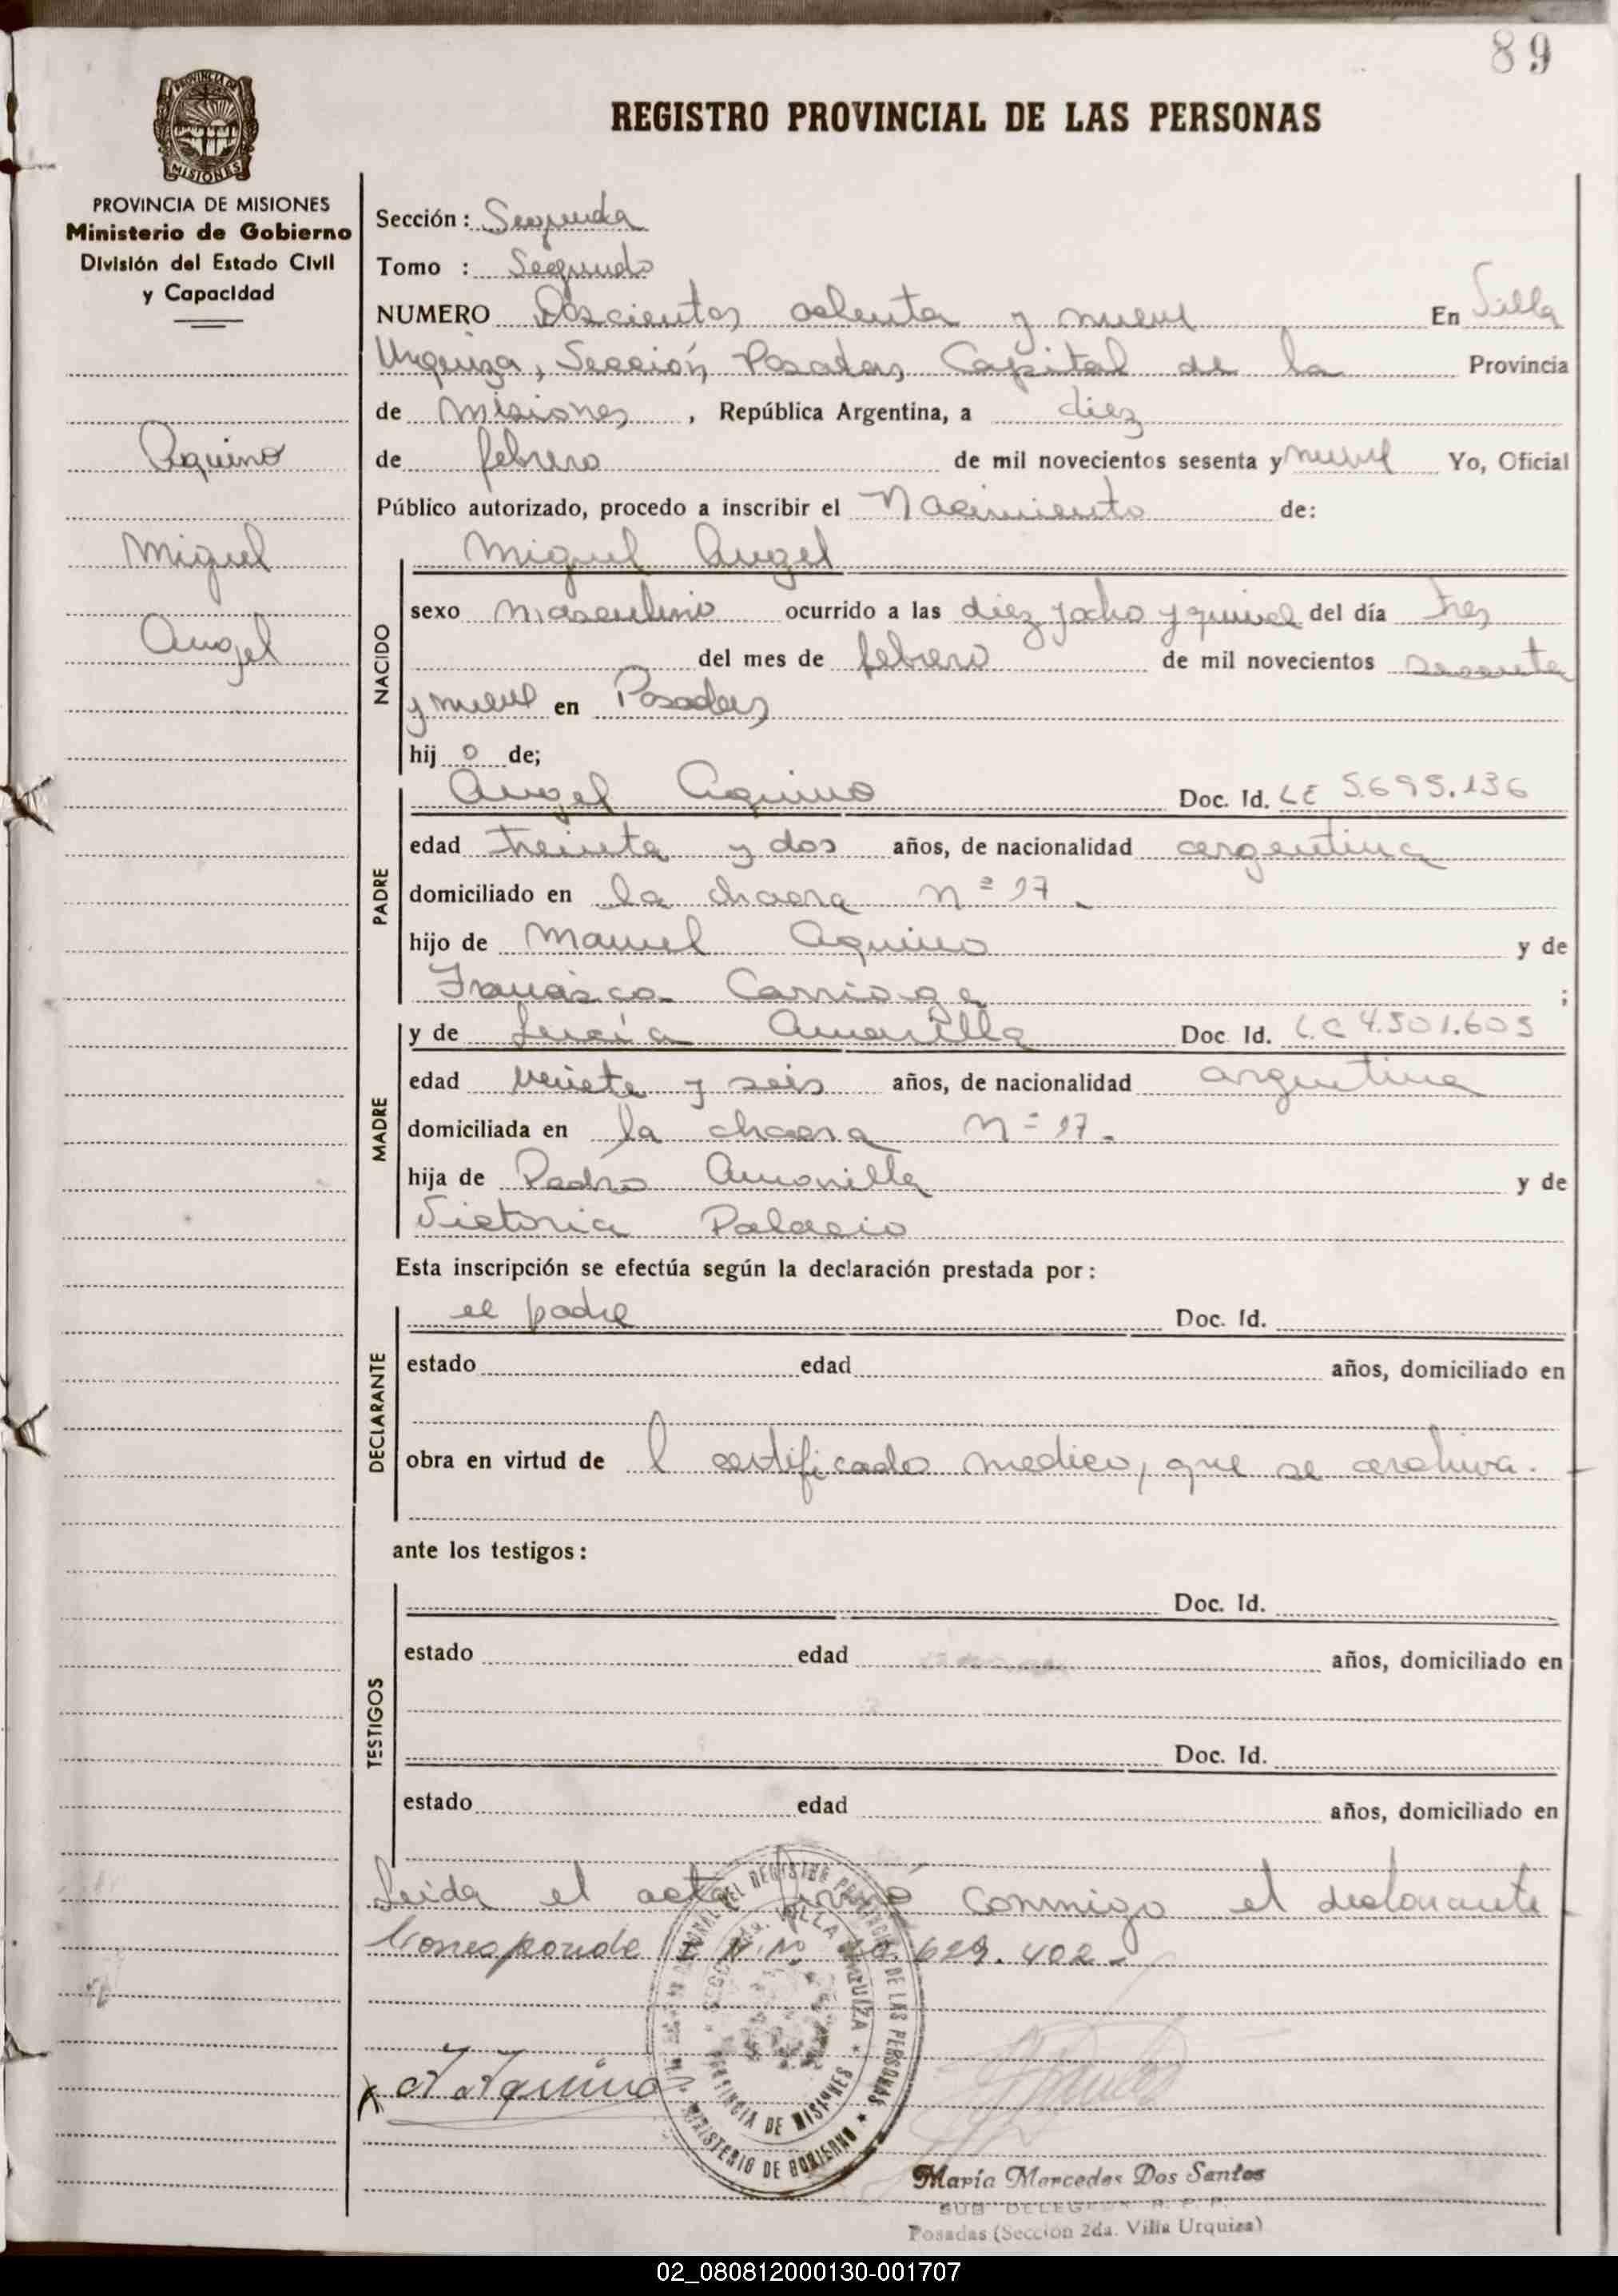 89
PROVINCIA DE MISIONES
REGISTRO PROVINCIAL DE LAS PERSONAS
PROVINCIA DE MISIONES
Ministerio de Gobierno
División del Estado Civil
y Capacidad
Aquino
Miguel
Angel
Sección: Segunda
Tomo : Segundo
NUMERO Doscientos ochenta y nueve En Villa
Urquiza, Sección Posadas, Capital de la Provincia
de Misiones, República Argentina, a diez
de febrero de mil novecientos sesenta y nueve Yo, Oficial
Público autorizado, procedo a inscribir el Nacimiento de:
NACIDO
Miguel Angel
sexo masculino ocurrido a las diez y ocho y quince del día tres
del mes de febrero de mil novecientos sesenta
y nueve en Posadas
hij o de;
PADRE
Angel Aquino Doc. Id. LE 5.695.136
edad treinta y dos años, de nacionalidad argentina
domiciliado en la chacra nº 17.
hijo de Manuel Aquino y de
Francisca ;
MADRE
y de Lucía Amarilla Doc. Id. L.C 4.501.605
edad veinte y seis años, de nacionalidad argentina
domiciliada en la chacra Nº 17.
hija de Pedro Amarilla y de
Victoria Palacio
Esta inscripción se efectúa según la declaración prestada por:
DECLARANTE
el padre Doc. Id.
estado edad años, domiciliado en
obra en virtud de l certificado medico, que se archiva.
ante los testigos:
TESTIGOS
Doc. Id.
estado edad años, domiciliado en
Doc. Id.
estado edad años, domiciliado en
Leida el acta firmó conmigo el declarante
Corresponde M.Nº 20.629.402.-
A Aquino
DEL REGISTRO PROVINCIAL DE LAS PERSONAS
VILLA URQUIZA
PROVINCIA DE MISIONES
MINISTERIO DE GOBIERNO
María Mercedes Dos Santos
SUB DELEGADA R. P. P.
Posadas (Sección 2da. Villa Urquiza)
02_080812000130-001707